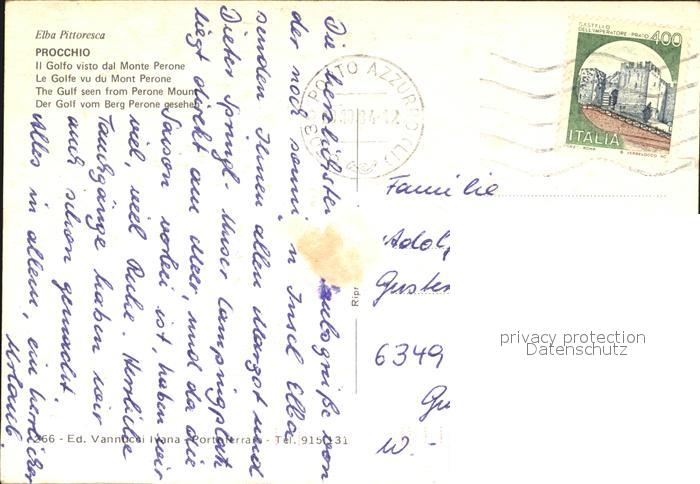 Elba Pittoresca
PROCCHIO
Il Golfo visto dal Monte Perone
Le Golfe vu du Mont Perone
The Gulf seen from Perone Mount
Der Golf vom Berg Perone gesehen
CASTELLO
DELL'IMPERATORE - PRATO 400
ITALIA
PORTO AZZURRO (LI)
Die herrlichsten Urlaubsgrüße von
der noch sonni n Insel Elba
senden Ihnen allen Margot und
Dieter Springl. Unser Campingplatz
liegt direkt am Meer, und da die
Saison vorbei ist, haben wir
viel, viel Ruhe. Herrliche
Tauchgänge haben wir
auch schon gemacht.
Alles in allem, ein herrlicher
Urlaub
Familie
Adol
Guster
6349
W. -
privacy protection
Datenschutz
266 - Ed. Vannucci Ivana - Portoferraio - Tel. 915131
Ripr